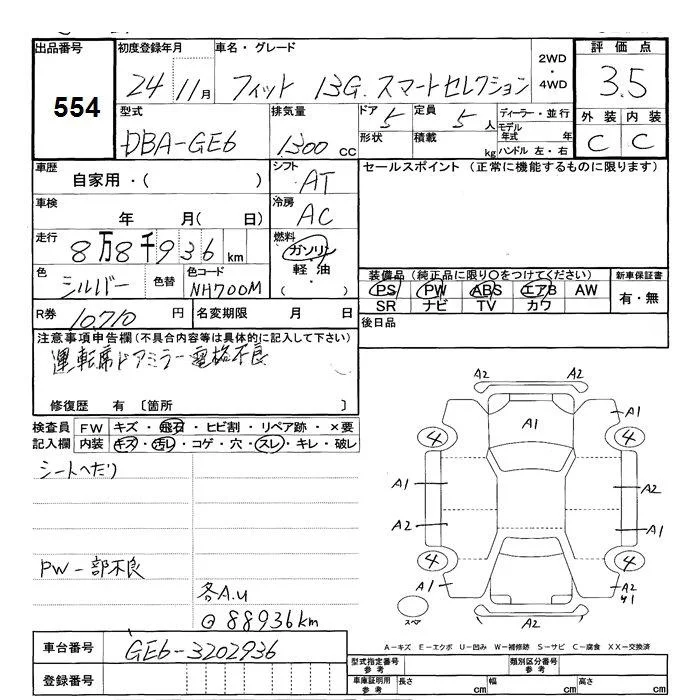 出品番号 初度登録年月 車名・グレード 2WD・4WD 評価点
554 24 11月 フィット 13G.スマートセレクション 3.5
型式 排気量 ドア 5 定員 5人 ディーラー・並行 外装 内装
DBA-GE6 1300cc 形状 積載 kg モデル年式 年 ハンドル 左・右 C C
車歴 シフト セールスポイント (正常に機能するものに限ります)
自家用・( ) AT
車検 冷房
年 月( 日) AC
走行 燃料
8万8千936km ガソリン
色 シルバー 色替 色コード NH700M 軽油・( )
装備品 (純正品に限り○をつけてください) 新車保証書
PS PW ABS エアB AW 有・無
SR ナビ TV カワ
R券 10,710円 名変期限 月 日 後日品
注意事項申告欄 (不具合内容等は具体的に記入して下さい)
運転席ドアミラー電格不良
修復歴 有 〔箇所 〕
検査員 FW キズ・飛石・ヒビ割・リペア跡・×要
記入欄 内装 キズ・汚レ・コゲ・穴・スレ・キレ・破レ
シートへたり
PW一部不良
各A.u
@88936km
A2 A2
A1 A1
4 4
A1 A2
A2 A1
4 4
A1 A2
スペア A2
A-キズ E-エクボ U-凹み W-補修跡 S-サビ C-腐食 XX-交換済
車台番号 GE6-3202936
登録番号
型式指定番号 参考 類別区分番号 参考
車庫証明用 参考 長さ cm 幅 cm 高さ cm